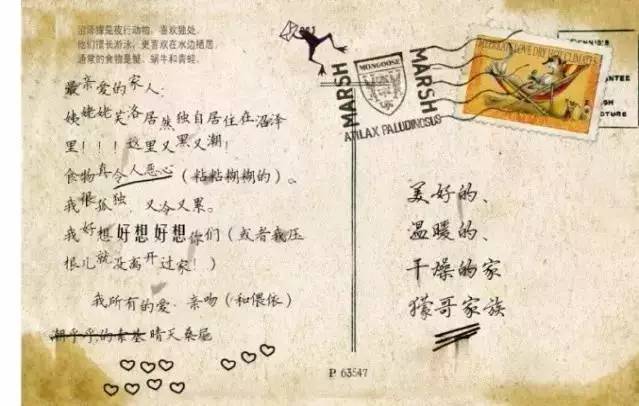 沼泽獴是夜行动物，喜欢独处。
他们擅长游泳，更喜欢在水边栖居。
通常的食物是蟹、蜗牛和青蛙。
最亲爱的家人：
姨姥姥芙洛居然独自居住在沼泽
里！！！这里又黑又潮！
食物真令人恶心（粘粘糊糊的）。
我很孤独，又冷又累。
我好想好想好想你们（或者我压
根儿就没离开过家！）
我所有的爱、亲吻（和偎依）
潮乎乎的素基 晴天桑尼
MARSH
MONGOOSE
MARSH
ATILAX PALUDINOSUS
美好的、
温暖的、
干燥的家
獴哥家族
P 63547